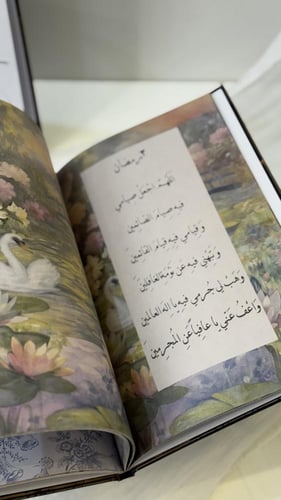 ٣ رمضان
اللهم اجعل صيامي
فيه صيام الصائمين
وقيامي فيه قيام القائمين
ونبهني فيه عن نومة الغافلين
وهب لي جرمي فيه يا إله العالمين
وَاعْفُ عَنّي يا عافِياً عَنِ المُجرِمينَ